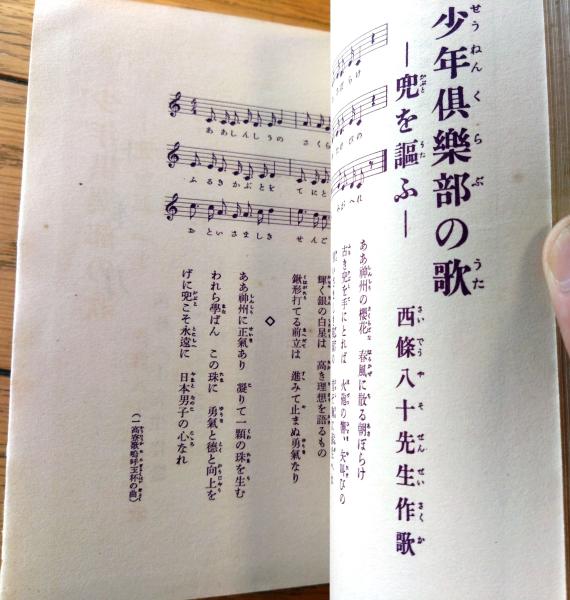 少年倶樂部の歌
―兜を謳ふ―
西條八十先生作歌
ああしんしうの さくら
ふるきかぶとを てにと
おといさましき せんご
ああ神州の櫻花 春風に散る朝ぼらけ
古き兜を手にとれば
輝く銀の白星は 高き理想を語るもの
鍬形打てる前立は 進みて止まぬ勇氣なり
◇
ああ神州に正氣あり 凝りて一顆の珠を生む
われら學ばん この珠に 勇氣と德と向上を
げに兜こそ永遠に 日本男子の心なれ
(一高寮歌嗚呼玉杯の曲)